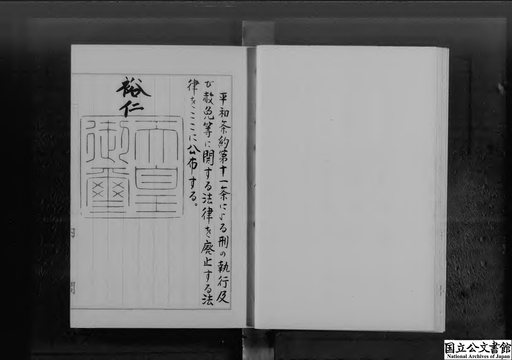 平和条約第十一条による刑の執行及
び赦免等に関する法律を廃止する法
律をここに公布する。
裕仁
天皇
御璽
国立公文書館
National Archives of Japan